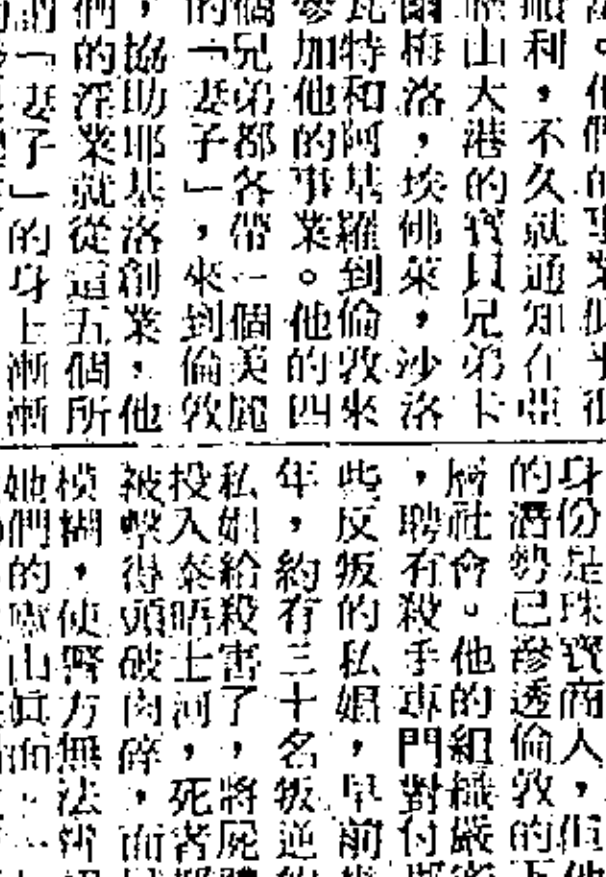 順利，不久就通知在亞
山大港的寶貝兄弟卡
爾梅洛，埃佛萊，沙洛
瓦特和阿基羅到倫敦來
參加他的事業。他的四
個兄弟都各帶一個美麗
的「妻子」，來到倫敦
，協助耶基洛創業，他
們的淫業就從這五個所
謂「妻子」的身上漸漸
身份是珠寶商人，但他
的潛勢已滲透倫敦的下
層社會。他的組織嚴密
，聘有殺手專門對付那
些反叛的私娼，早前
年，約有三十名叛逆的
私娼給殺害了，將屍體
投入泰晤士河，死者都
被擊得頭破肉碎，面
模糊，使警方無法辨認
她們的廬山真面